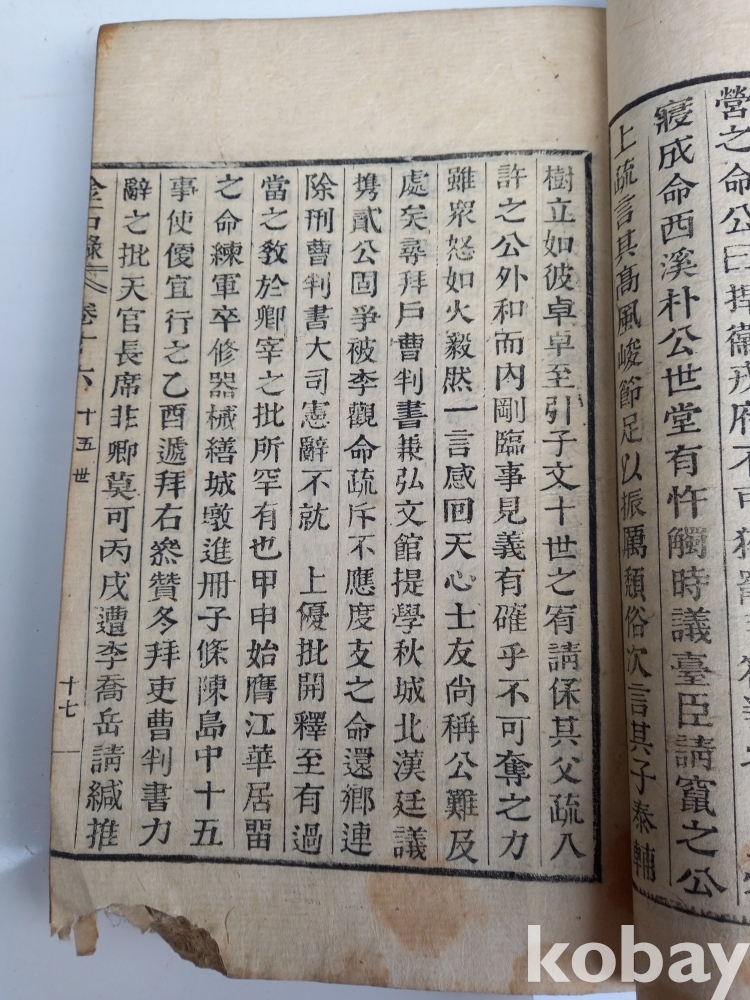 營之命公曰
寢成命西溪朴公世堂有忤觸時議臺臣請竄之公
上疏言其高風峻節足以振厲頹俗次言其子泰輔
樹立如彼卓卓至引子文十世之宥請保其父疏入
許之公外和而內剛臨事見義有確乎不可奪之力
雖衆怒如火毅然一言感回天心士友尙稱公難及
處矣尋拜戶曹判書兼弘文館提學秋城北漢廷議
携貳公固爭被李觀命疏斥不應度支之命還鄕連
除刑曹判書大司憲辭不就 上優批開釋至有過
當之敎於卿宰之批所罕有也甲申始膺江華居留
之命練軍卒修器械繕城墩進冊子條陳島中十五
事使便宜行之乙酉遞拜右叅贊冬拜吏曹判書力
辭之批天官長席非卿莫可丙戌遭李喬岳請緘推
金石錄 卷十六 十五世 十七
kobay